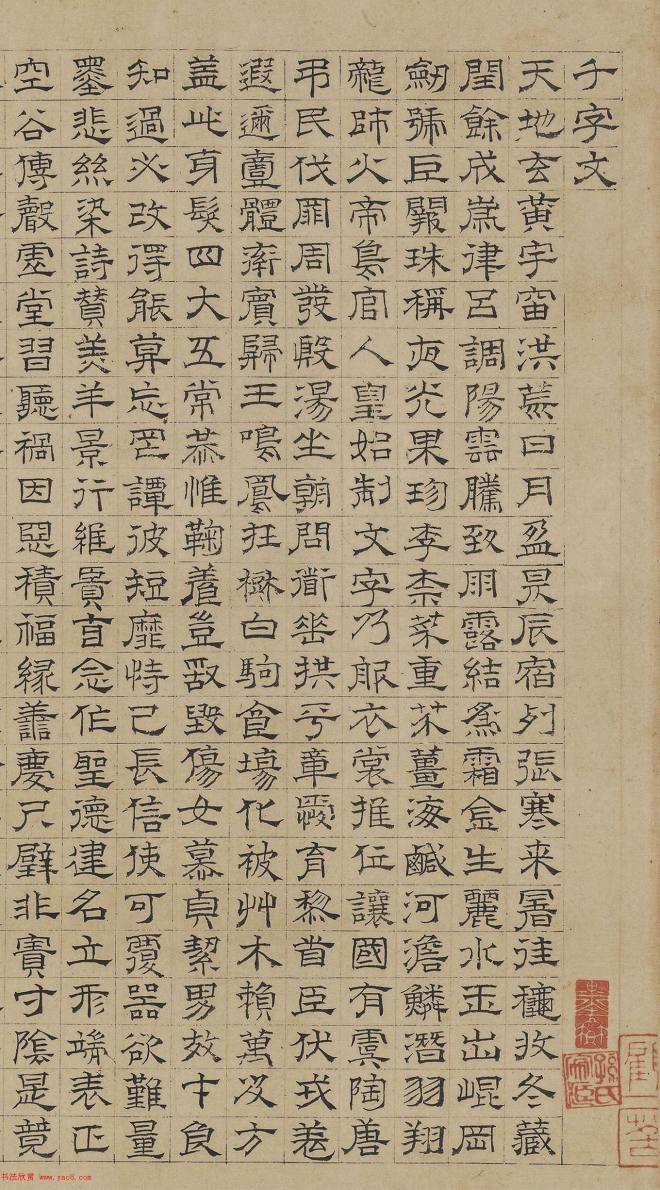 千字文
天地玄黃宇宙洪荒日月盈昃辰宿列張寒来暑往穐收冬藏
閏餘成歲律呂調陽雲騰致雨露結為霜金生麗水玉出崐岡
劒號巨闕珠稱夜光果珍李柰菜重芥薑海鹹河澹鱗潛羽翔
龍師火帝鳥官人皇始制文字乃服衣裳推位讓國有虞陶唐
弔民伐罪周發殷湯坐朝問道垂拱平章愛育黎首臣伏戎羌
遐邇壹體率賓歸王鳴鳳在樹白駒食場化被艸木賴萬及方
蓋此身髮四大五常恭惟鞠養豈敢毀傷女慕貞絜男效才良
知過必改得能莫忘罔譚彼短靡恃己長信使可覆器欲難量
墨悲絲染詩贊羔羊景行維賢克念作聖德建名立形端表正
空谷傳聲虛堂習聽禍因惡積福緣善慶尺璧非寶寸陰是競
书法欣赏 www.yac8.com